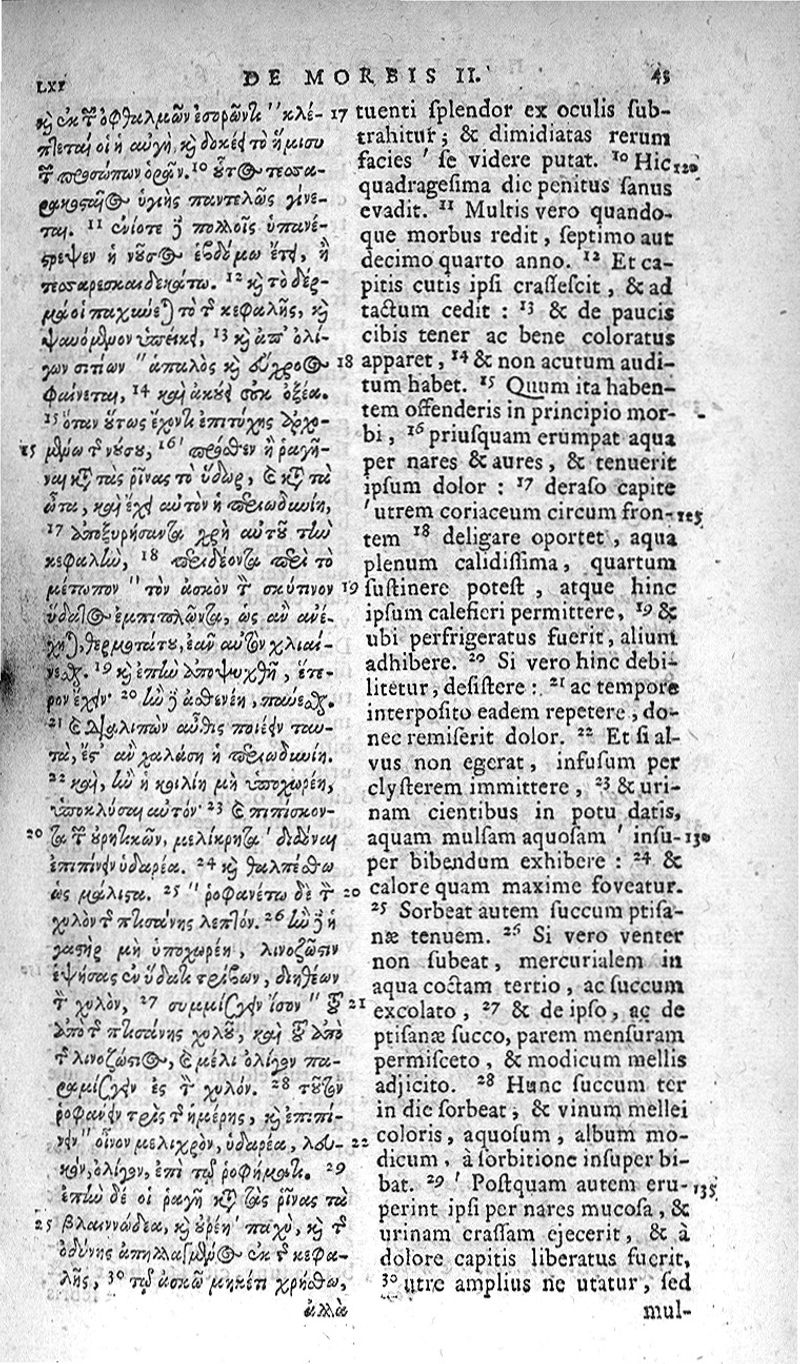 LXI DE MORBIS II. 45
καὶ ἐκ τῶν ὀφθαλμῶν ἐσορῶντι " κλέ- 17
πτεται οἱ ἡ αὐγὴ, καὶ δοκέει τὸ ἥμισυ
τῶν προσώπων ὁρᾶν. 10 οὗτος τεσσα-
ρακοσταῖος ὑγιὴς παντελῶς γίνε-
ται. 11 ἐνίοτε δὲ πολλοῖς ὑπανέ-
στρεψεν ἡ νοῦσος ἑβδόμῳ ἔτει, ἢ
τεσσαρεσκαιδεκάτῳ. 12 καὶ τὸ δέρ-
μα οἱ παχύνεται τὸ τῆς κεφαλῆς, καὶ
ψαυόμενον ὑπείκει, 13 καὶ ἀπ' ὀλί-
γων σιτίων " ἁπαλὸς καὶ εὔχροος 18
φαίνεται, 14 καὶ ἀκούει οὐκ ὀξέα.
15 ὅταν οὕτως ἔχοντι ἐπιτύχῃς ἀρχο-
15 μένῳ τῆς νούσου, 16 ' πρόσθεν ἢ ῥαγῆ-
ναι κατὰ τὰς ῥῖνας τὸ ὕδωρ, καὶ κατὰ τὰ
ὦτα, καὶ ἔχει αὐτὸν ἡ περιωδυνίη,
17 ἀποξυρήσαντα χρὴ αὐτοῦ τὴν
κεφαλὴν, 18 περιδέοντα περὶ τὸ
μέτωπον " τὸν ἀσκὸν τὸν σκύτινον 19
ὕδατος ἐμπιπλῶντα, ὡς ἂν ἀνέ-
χηται, θερμοτάτου, ἐᾶν αὐτὸν χλιαί-
νεσθαι. 19 καὶ ἐπὴν ἀποψυχθῇ, ἕτε-
ρον ἐγχεῖν· 20 ἢν δὲ ἀσθενέῃ, παύεσθαι.
21 καὶ διαλιπὼν αὖθις ποιέειν ταυ-
τὰ, ἔστ' ἂν χαλάσῃ ἡ περιωδυνίη.
22 καὶ, ἢν ἡ κοιλίη μὴ ὑποχωρέῃ,
ὑποκλύσαι αὐτόν· 23 καὶ πιπίσκον-
20 τα τῶν οὐρητικῶν, μελίκρητα ' διδόναι
ἐπιπίνειν ὑδαρέα. 24 καὶ θαλπέσθω
ὡς μάλιστα. 25 " ῥοφανέτω δὲ τὸν 20
χυλὸν τῆς πτισάνης λεπτόν. 26 ἢν δὲ ἡ
γαστὴρ μὴ ὑποχωρέῃ, λινοζῶστιν
ἑψήσας ἐν ὕδατι τρίβων, διηθέων
τὸν χυλὸν, 27 συμμίσγειν ἴσον " τοῦ 21
ἀπὸ τῆς πτισάνης χυλοῦ, καὶ τοῦ ἀπὸ
τῆς λινοζώστιος, καὶ μέλι ὀλίγον πα-
ραμίσγειν ἐς τὸν χυλόν. 28 τοῦτον
ῥοφανέειν τρὶς τῆς ἡμέρης, καὶ ἐπιπί-
νειν " οἶνον μελιχρὸν, ὑδαρέα, λευ- 22
κὸν, ὀλίγον, ἐπὶ τῷ ῥοφήματι. 29
ἐπὴν δέ οἱ ῥαγῇ κατὰ τὰς ῥῖνας τὰ
25 βλαιννώδεα, καὶ οὐρέῃ ' παχὺ, καὶ τῆς
ὀδύνης ἀπηλλαγμένος ἐκ τῆς κεφα-
λῆς, 30 τῷ ἀσκῷ μηκέτι χρήσθω,
ἀλλὰ
tuenti splendor ex oculis sub-
trahitur; & dimidiatas rerum
facies ' se videre putat. 10 Hic 120
quadragesima die penitus sanus
evadit. 11 Multis vero quando-
que morbus redit, septimo aut
decimo quarto anno. 12 Et ca-
pitis cutis ipsi crassescit, & ad
tactum cedit : 13 & de paucis
cibis tener ac bene coloratus
apparet, 14 & non acutum audi-
tum habet. 15 Quum ita haben-
tem offenderis in principio mor-
bi, 16 priusquam erumpat aqua
per nares & aures, & tenuerit
ipsum dolor : 17 deraso capite
' utrem coriaceum circum fron- 125
tem 18 deligare oportet, aqua
plenum calidissima, quartum
sustinere potest, atque hinc
ipsum calefieri permittere, 19 &
ubi perfrigeratus fuerit, alium
adhibere. 20 Si vero hinc debi-
litetur, desistere : 21 ac tempore
interposito eadem repetere, do-
nec remiserit dolor. 22 Et si al-
vus non egerat, infusum per
clysterem immittere, 23 & uri-
nam cientibus in potu datis,
aquam mulsam aquosam ' insu- 130
per bibendum exhibere : 24 &
calore quam maxime foveatur.
25 Sorbeat autem succum ptisa-
næ tenuem. 26 Si vero venter
non subeat, mercurialem in
aqua coctam tertio, ac succum
excolato, 27 & de ipso, ac de
ptisanæ succo, parem mensuram
permisceto, & modicum mellis
adjicito. 28 Hunc succum ter
in die sorbeat, & vinum mellei
coloris, aquosum, album mo-
dicum, à sorbitione insuper bi-
bat. 29 ' Postquam autem eru- 135
perint ipsi per nares mucosa, &
urinam crassam ejecerit, & à
dolore capitis liberatus fuerit,
30 utre amplius ne utatur, sed
mul-